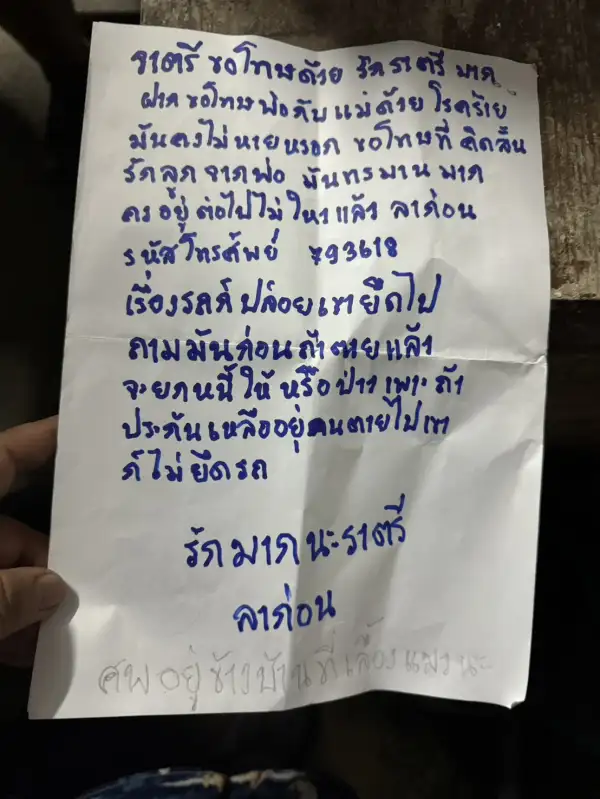 ราตรี ขอโทษด้วย รักราตรี มาก
ฝากขอโทษพ่อกับแม่ด้วย โรคร้าย
มันคงไม่หายหรอก ขอโทษที่คิดสั้น
รักลูก จากพ่อ มันทรมาน มาก
คงอยู่ ต่อไปไม่ไหวแล้ว ลาก่อน
รหัสโทรศัพย์ 793618
เรื่องรถก็ปล่อยเขายึดไป
ถามมันก่อนถ้าตายแล้ว
จะยกหนี้ให้หรือป่าว เพาะถ้า
ประกันเหลืออยู่คนตายไปเขา
ก็ไม่ยึดรถ
รักมากนะราตรี
ลาก่อน
ศพอยู่ข้างบ้านที่เลี้ยงแมงนะ